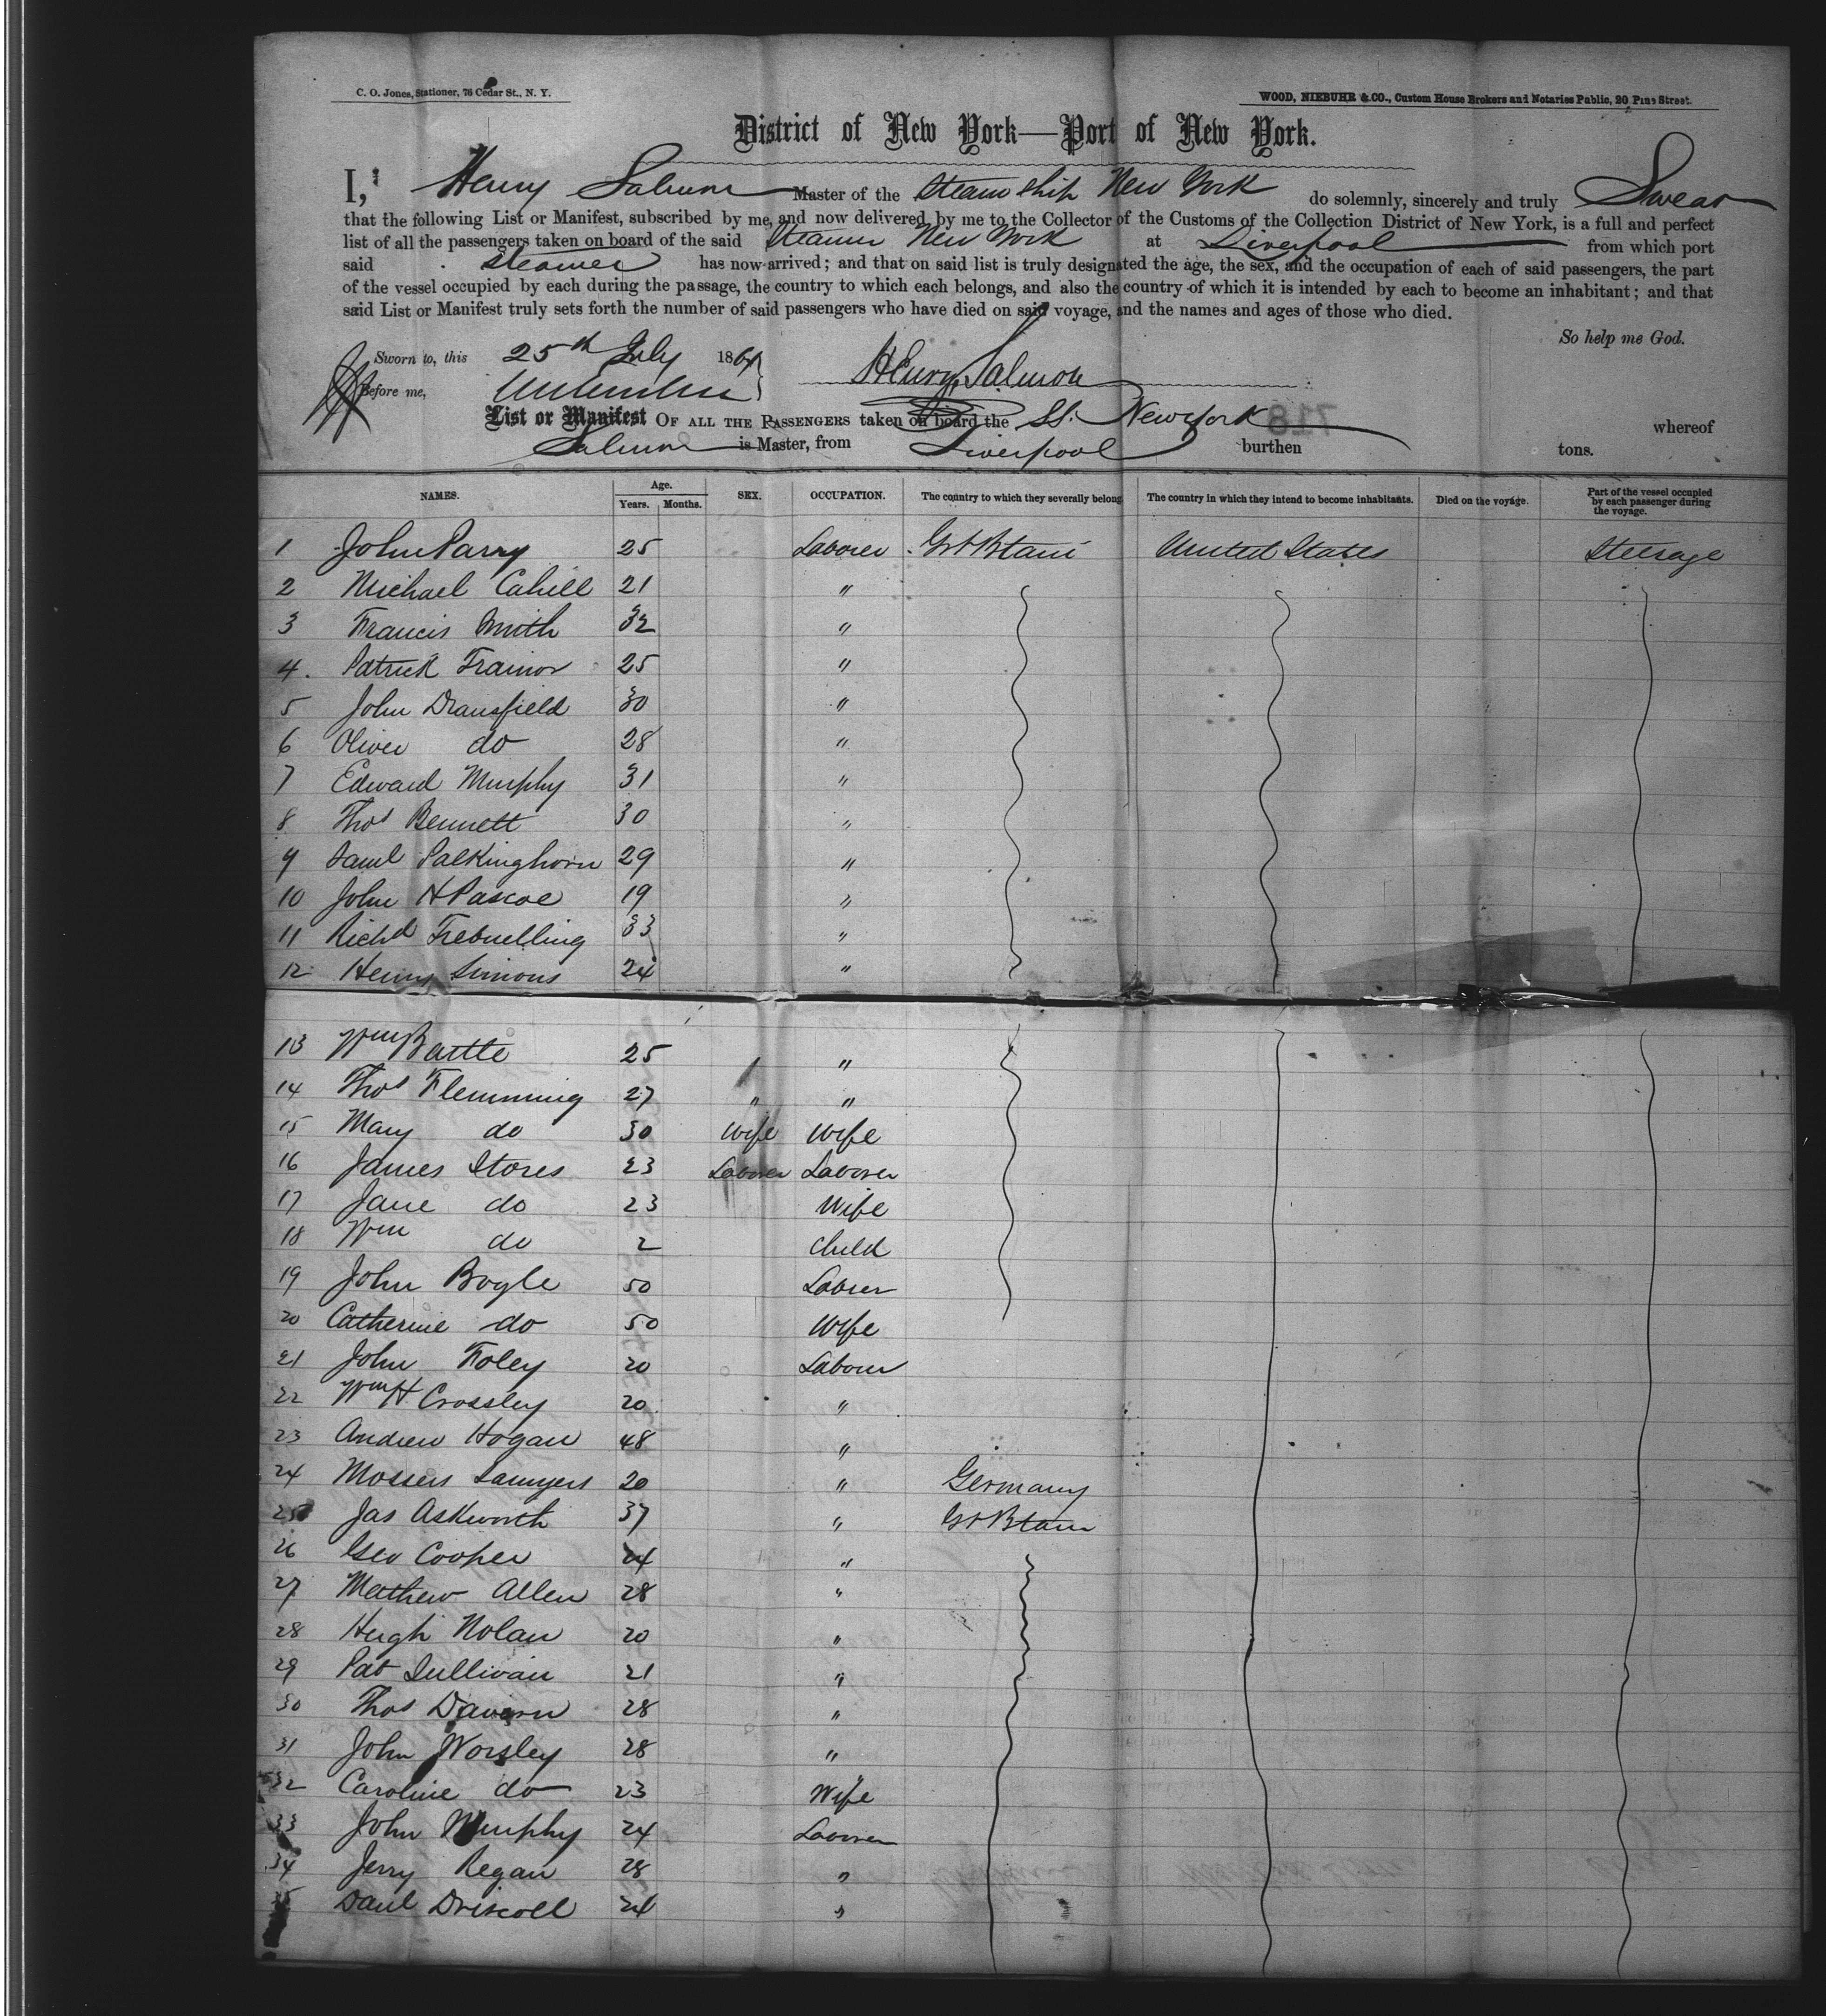 C. O. Jones, Stationer, 76 Cedar St., N. Y.
WOOD, NIEBUHR & CO., Custom House Brokers and Notaries Public, 20 Pine Street.
District of New York—Port of New York.
I, Henry Salmon Master of the Steam Ship New York do solemnly, sincerely and truly Swear
that the following List or Manifest, subscribed by me, and now delivered by me to the Collector of the Customs of the Collection District of New York, is a full and perfect
list of all the passengers taken on board of the said Steamer New York at Liverpool from which port
said steamer has now arrived; and that on said list is truly designated the age, the sex, and the occupation of each of said passengers, the part
of the vessel occupied by each during the passage, the country to which each belongs, and also the country of which it is intended by each to become an inhabitant; and that
said List or Manifest truly sets forth the number of said passengers who have died on said voyage, and the names and ages of those who died.
So help me God.
Sworn to, this 25th July 186
Henry Salmon
Before me,
List or Manifest OF ALL THE PASSENGERS taken on board the SS. New York whereof
Salmon is Master, from Liverpool burthen tons.
718
NAMES. Age. Years. Months. SEX. OCCUPATION. The country to which they severally belong The country in which they intend to become inhabitants. Died on the voyage. Part of the vessel occupied by each passenger during the voyage.
1 John Parry 25 Laborer Gt Btain United States Steerage
2 Michael Cahill 21 "
3 Francis Smith 32 "
4. Patrick Trainor 25 "
5 John Dransfield 30 "
6 Oliver do 28 "
7 Edward Murphy 31 "
8 Thos Bennett 30 "
9 Saml Palkinghorn 29 "
10 John H Pascoe 19 "
11 Richd Trebuelling 33 "
12 Henry Simons 24 "
13 Wm Battle 25 "
14 Thos Flemming 27 " "
15 Mary do 30 Wife Wife
16 James Stores 23 Laborer Laborer
17 Jane do 23 Wife
18 Wm do 2 Child
19 John Boyle 50 Laborer
20 Catherine do 50 Wife
21 John Foley 20 Laborer
22 Wm H Crossley 20 "
23 Andrew Hogan 48 "
24 Mossers Sawyers 20 " Germany
25 Jas Askworth 37 " Gt Btain
26 Geo Cooper 24 "
27 Mathew Allen 28 "
28 Hugh Nolan 20 "
29 Pat Sullivan 21 "
30 Thos Davern 28 "
31 John Worsley 28 "
32 Caroline do 23 Wife
33 John Murphy 24 Laborer
34 Jerry Regan 28 "
35 Danl Driscoll 24 "